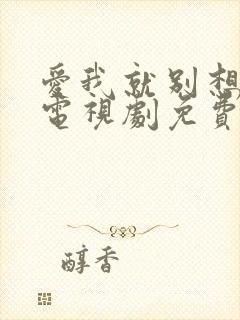 愛我就别想
電視劇免費
醇香